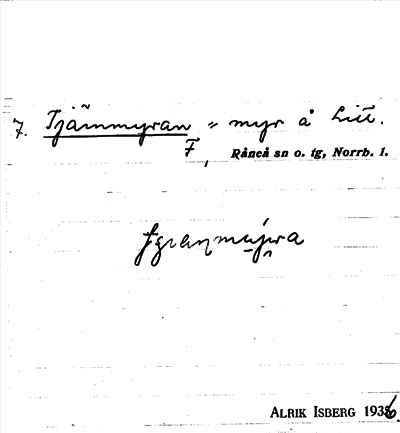 7. Tjärnmyran = myr å Litt.
F,
Råneå sn o. tg, Norrb. l.
ALRIK ISBERG 1936.